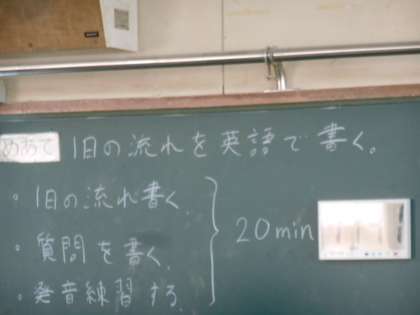 めあて 1日の流れを英語で書く。
・1日の流れ書く。
・質問を書く。
・発音練習する。
20min